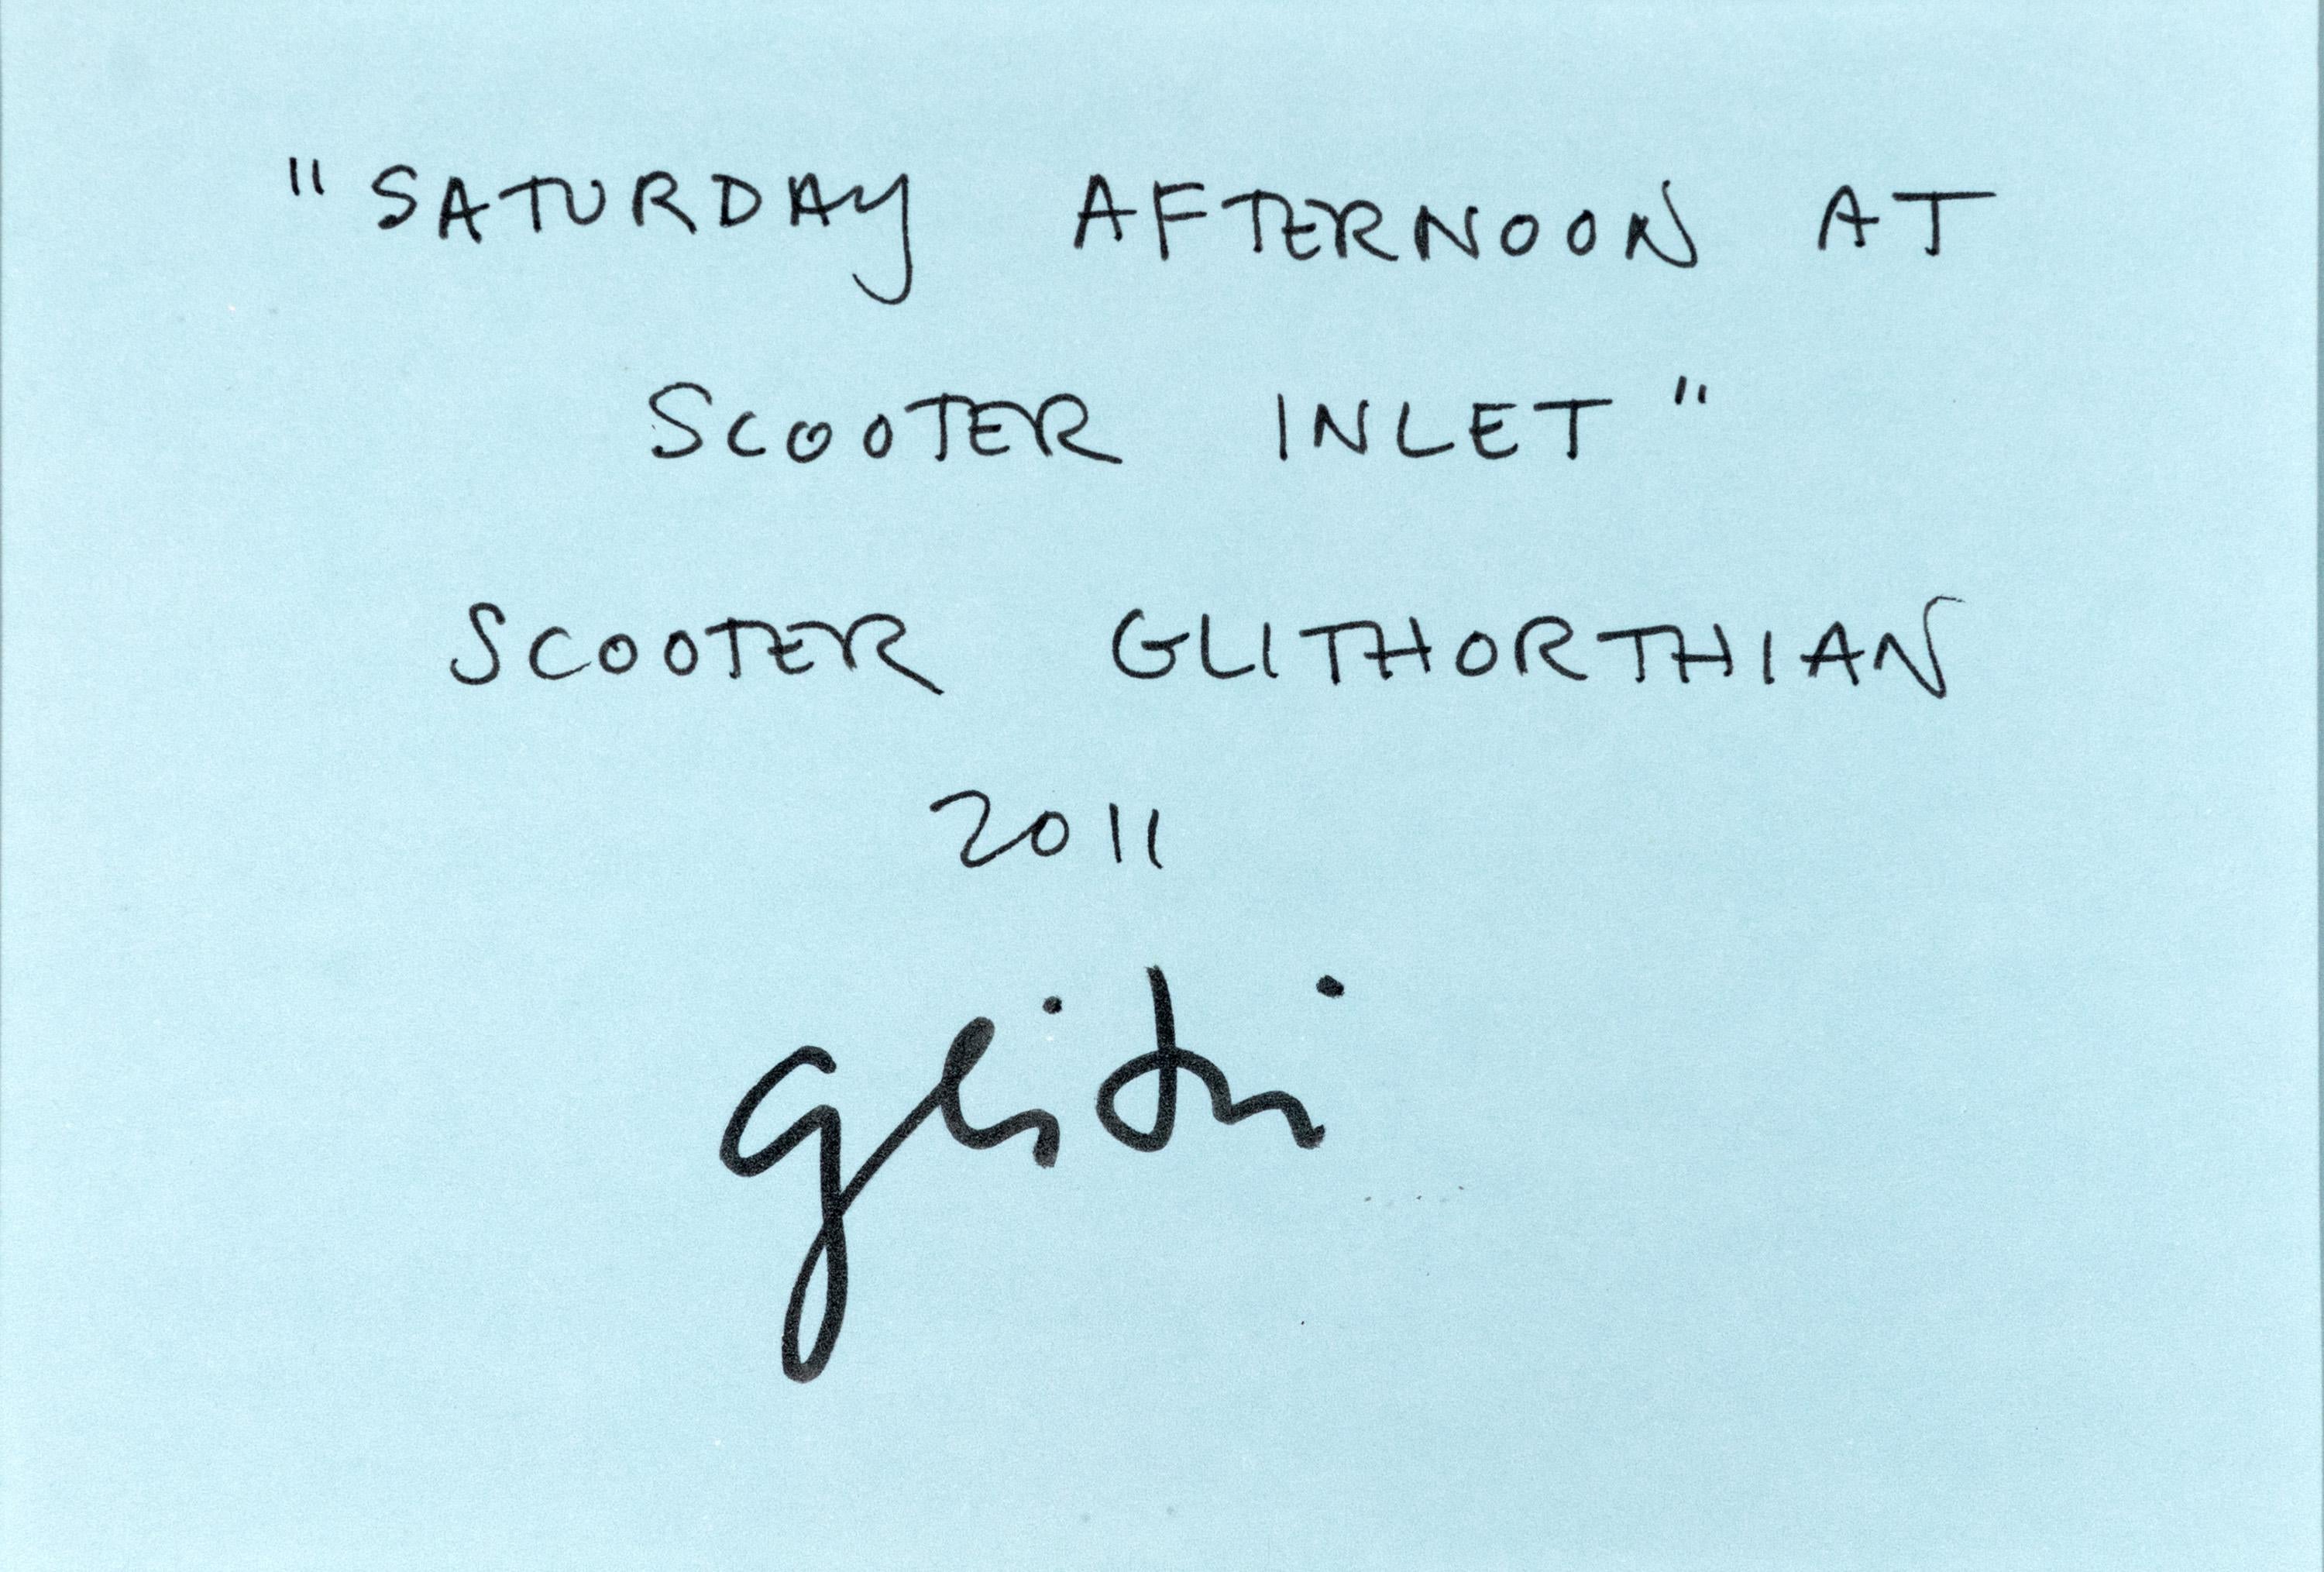 "SATURDAY AFTERNOON AT
SCOOTER INLET"
SCOOTER GLITHORTHIAN
2011